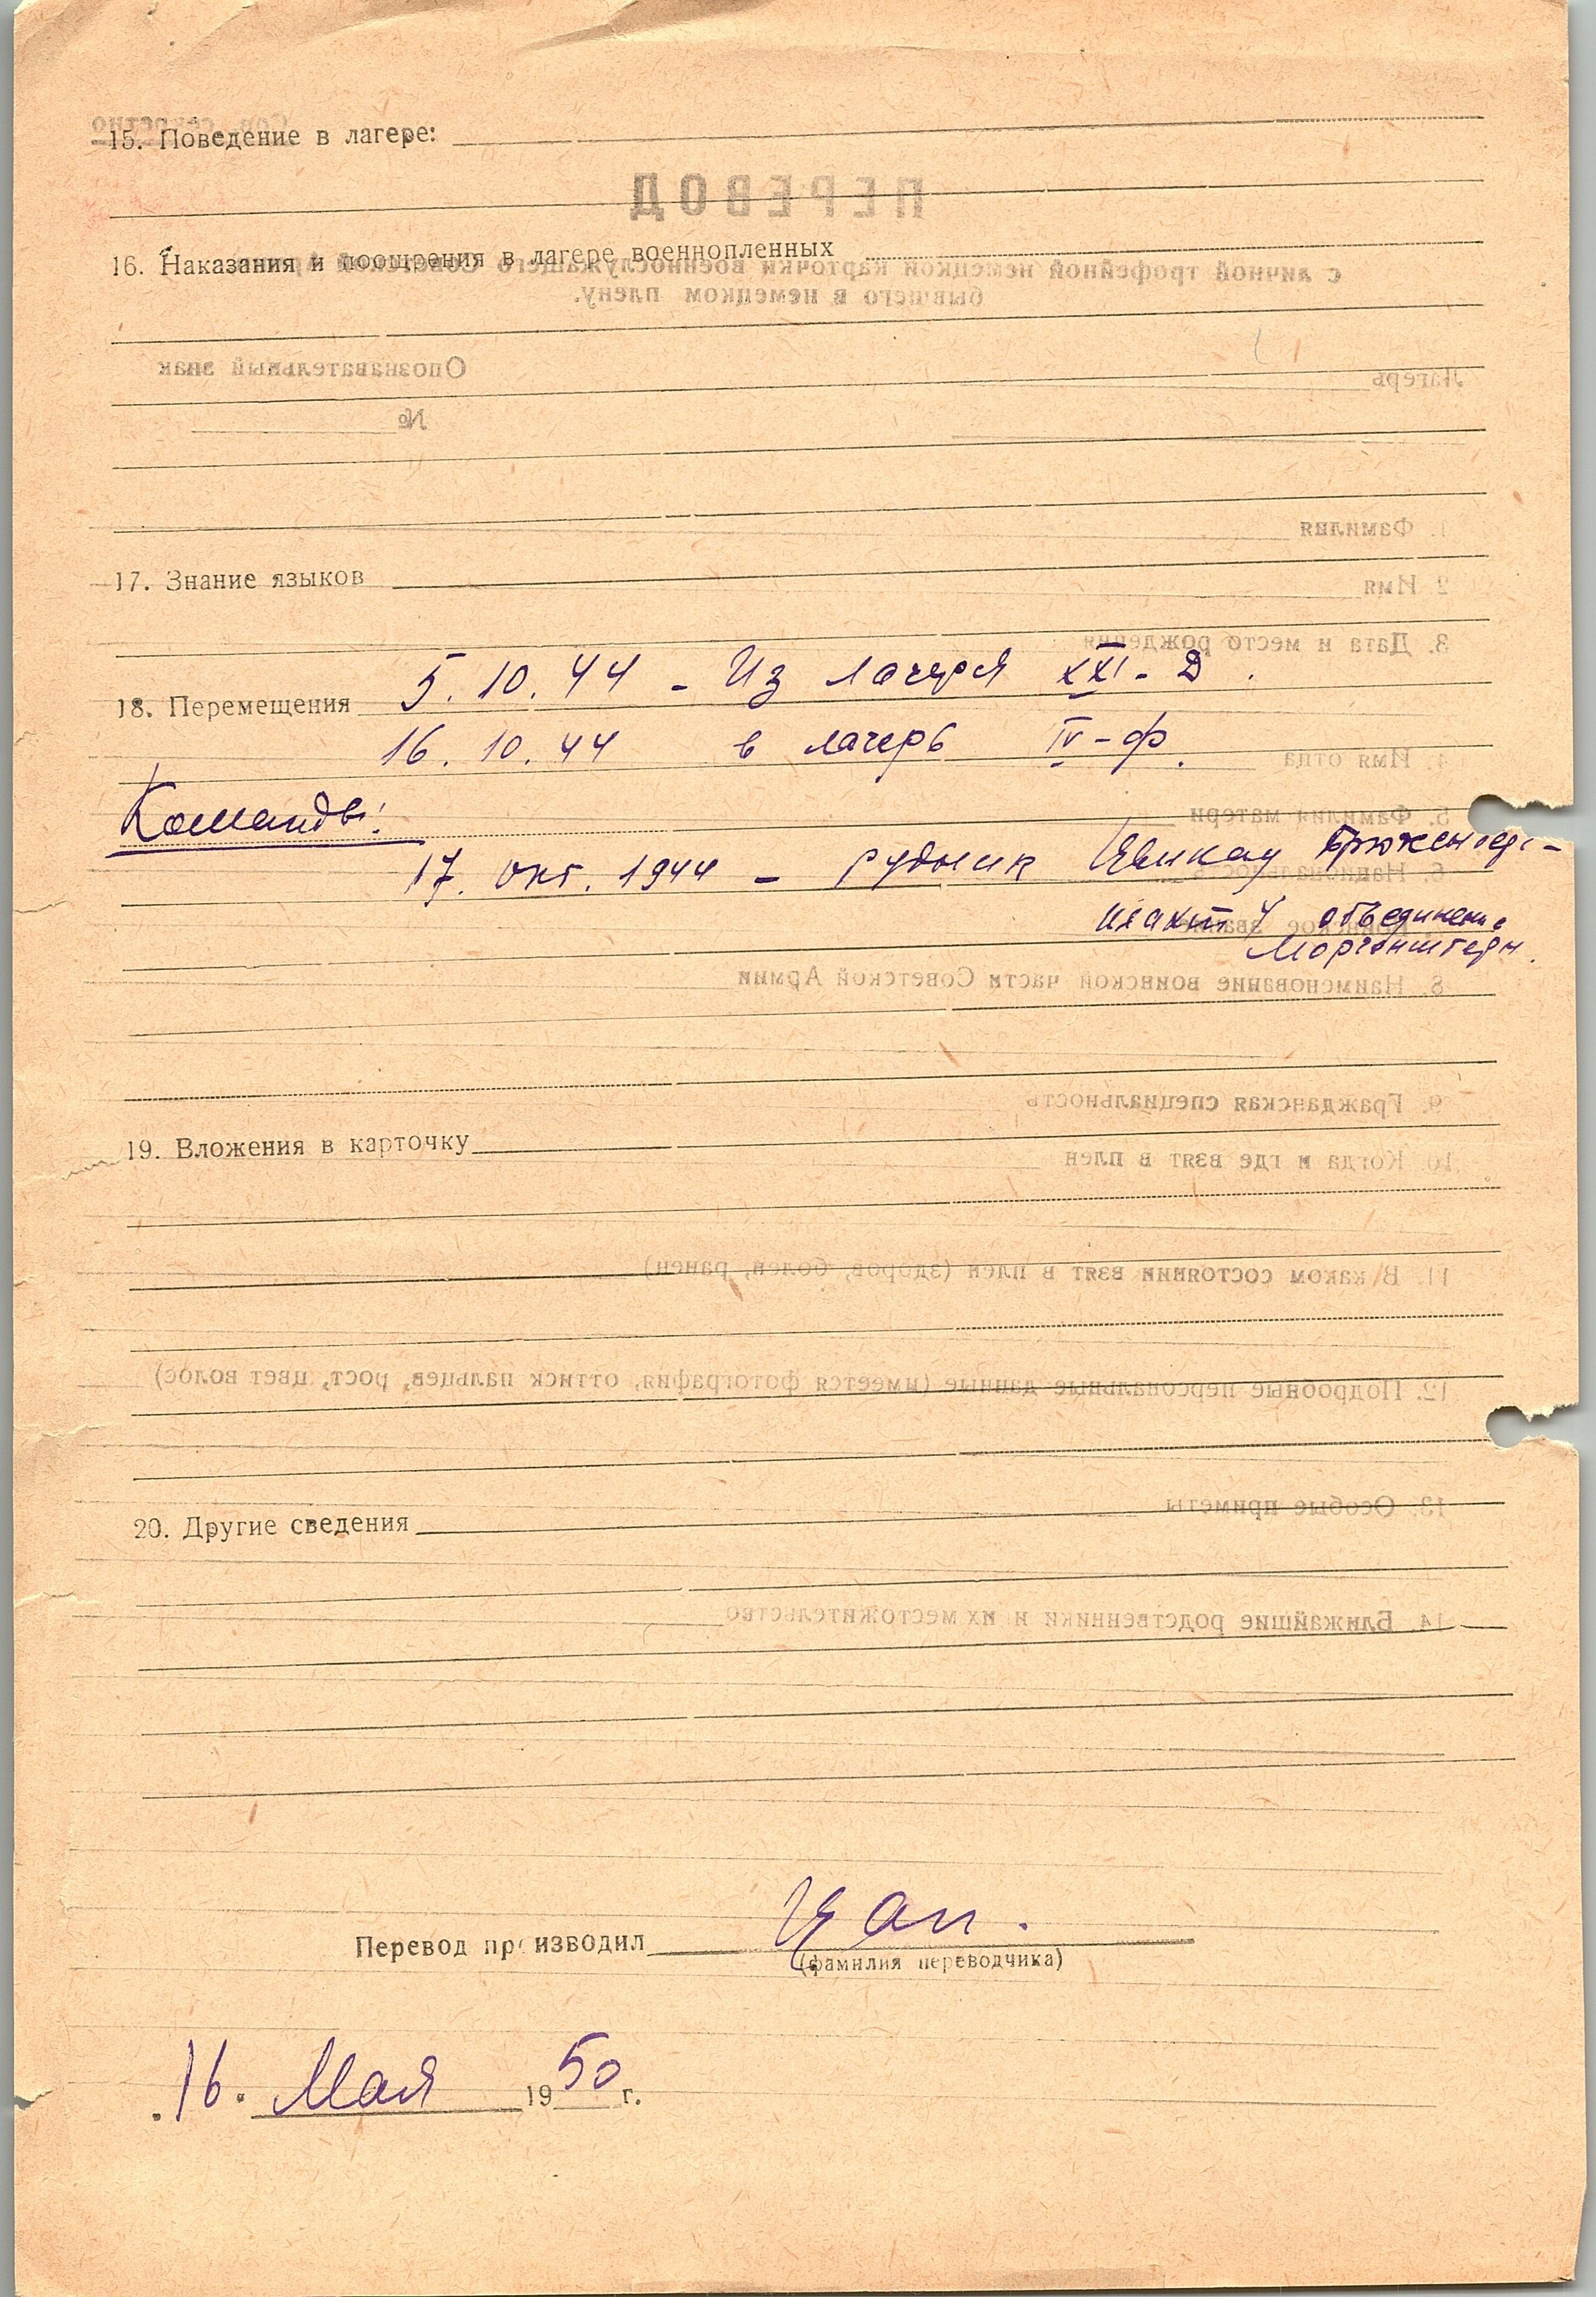 15. Поведение в лагере:
16. Наказания и поощрения в лагере военнопленных
17. Знание языков
18. Перемещения 5.10.44 - Из лагеря XXI-Д.
16.10.44 в лагерь IV-Ф.
Команды:
17. окт. 1944 - рудник Цвикау
объединение
Моргенштерн.
19. Вложения в карточку
20. Другие сведения
Перевод производил
(фамилия переводчика)
16. Мая 1950 г.